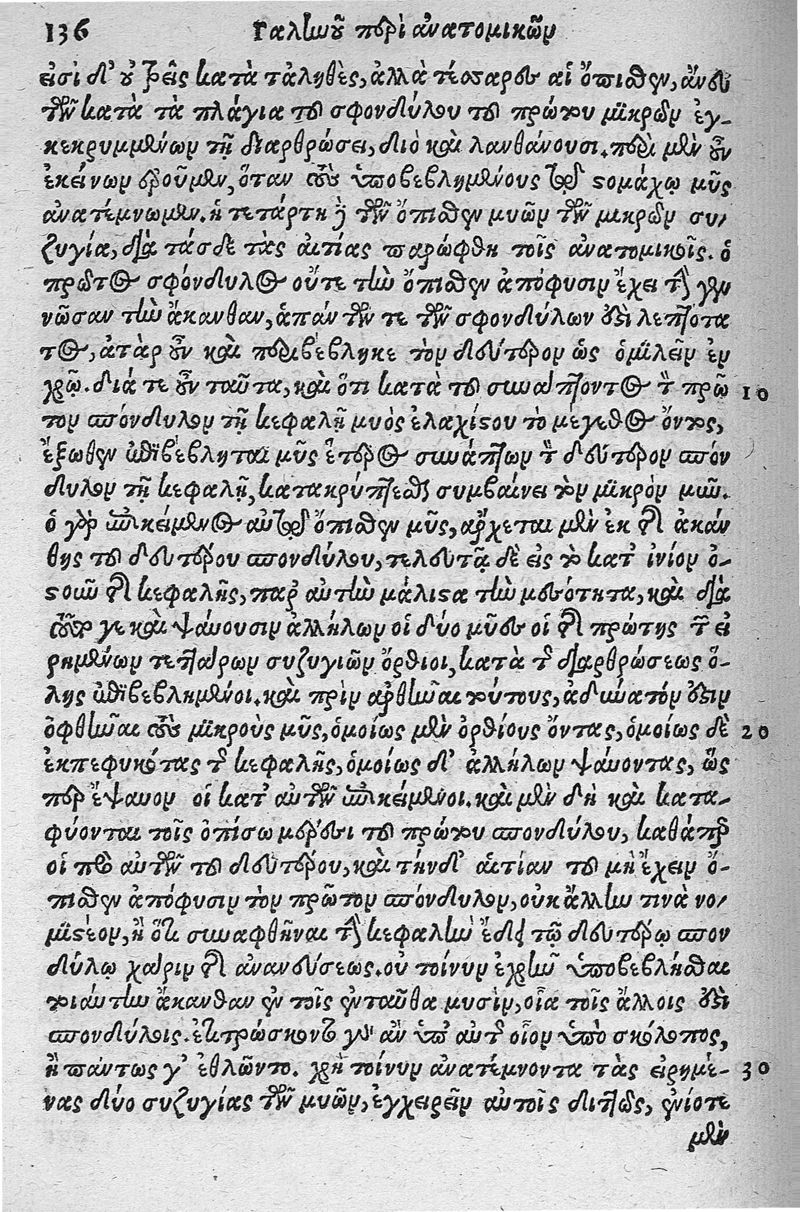 136 Γαλίωοῦ περὶ ἀνατομικῶν
εἰσὶ δ' οὐ τρεῖς κατὰ τἀληθὲς, ἀλλὰ τέσσαρες αἱ ὄπισθεν, ἄνευ
τῶν κατὰ τὰ πλάγια τοῦ σφονδύλου τοῦ πρώτου μικρῶν ἐγ-
κεκρυμμένων τῇ διαρθρώσει, διὸ καὶ λανθάνουσι. περὶ μὲν οὖν
ἐκείνων ἐροῦμεν, ὅταν τοὺς ὑποβεβλημένους τῷ στομάχῳ μῦς
ἀνατέμνωμεν. ἡ τετάρτη δὲ τῶν ὄπισθεν μυῶν τῶν μικρῶν συ-
ζυγία, διὰ τάσδε τὰς αἰτίας παρώφθη τοῖς ἀνατομικοῖς. ὁ
πρῶτος σφόνδυλος οὔτε τὴν ὄπισθεν ἀπόφυσιν ἔχει τὴν γεν
νῶσαν τὴν ἄκανθαν, ἁπάντων τε τῶν σφονδύλων ἐστὶ λεπτότα
τος, ἀτὰρ οὖν καὶ περιβέβληκε τὸν δεύτερον ὡς ὁμιλεῖν ἐν
χρῷ. διά τε οὖν ταῦτα, καὶ ὅτι κατὰ τοῦ συνάπτοντος τὸν πρῶ 10
τον σπόνδυλον τῇ κεφαλῇ μυὸς ἐλαχίστου τὸ μέγεθος ὄντος,
ἔξωθεν ἐπιβέβληται μῦς ἕτερος συνάπτων τὸν δεύτερον σπόν
δυλον τῇ κεφαλῇ, κατακρύπτεσθαι συμβαίνει τὸν μικρὸν μῦν.
ὁ γὰρ ἐπικείμενος αὐτῷ ὄπισθεν μῦς, ἄρχεται μὲν ἐκ τῆς ἀκάν
θης τοῦ δευτέρου σπονδύλου, τελευτᾷ δὲ εἰς τὸ κατ' ἰνίον ὀ-
στοῦν τῆς κεφαλῆς, παρ' αὐτὴν μάλιστα τὴν μεσότητα, καὶ διὰ
τοῦτό γε καὶ ψαύουσιν ἀλλήλων οἱ δύο μῦες οἱ τῆς πρώτης τῶν εἰ
ρημένων τεττάρων συζυγιῶν ὄρθιοι, κατὰ τῆς διαρθρώσεως ὅ-
λης ἐπιβεβλημένοι. καὶ πρὶν ἀρθῆναι τούτους, ἀδύνατόν ἐστιν
ὀφθῆναι τοὺς μικροὺς μῦς, ὁμοίως μὲν ὀρθίους ὄντας, ὁμοίως δὲ 20
ἐκπεφυκότας τῆς κεφαλῆς, ὁμοίως δ' ἀλλήλων ψαύοντας, ὥς
περ ἔψαυον οἱ κατ' αὐτῶν ἐπικείμενοι. καὶ μὲν δὴ καὶ κατα-
φύονται τοῖς ὀπίσω μέρεσι τοῦ πρώτου σπονδύλου, καθάπερ
οἱ πρὸ αὐτῶν τοῦ δευτέρου, καὶ τήνδ' αἰτίαν τοῦ μὴ ἔχειν ὄ-
πισθεν ἀπόφυσιν τὸν πρῶτον σπόνδυλον, οὐκ ἄλλην τινὰ νο-
μιστέον, ἢ ὅτι συναφθῆναι τὴν κεφαλὴν ἔδει τῷ δευτέρῳ σπον
δύλῳ χάριν τῆς ἀνανεύσεως. οὐ τοίνυν ἐχρῆν ὑποβεβλῆσθαι
τοιαύτην ἄκανθαν ἐν τοῖς ἐνταῦθα μυσὶν, οἵα τοῖς ἄλλοις ἐστὶ
σπονδύλοις. ἐτιτρώσκοντο γὰρ ἂν ὑπ' αὐτῆς οἷον ὑπὸ σκόλοπος,
ἢ πάντως γ' ἐθλῶντο. χρὴ τοίνυν ἀνατέμνοντα τὰς εἰρημέ- 30
νας δύο συζυγίας τῶν μυῶν, ἐγχειρεῖν αὐτοῖς διττῶς, ἐνίοτε
μὲν